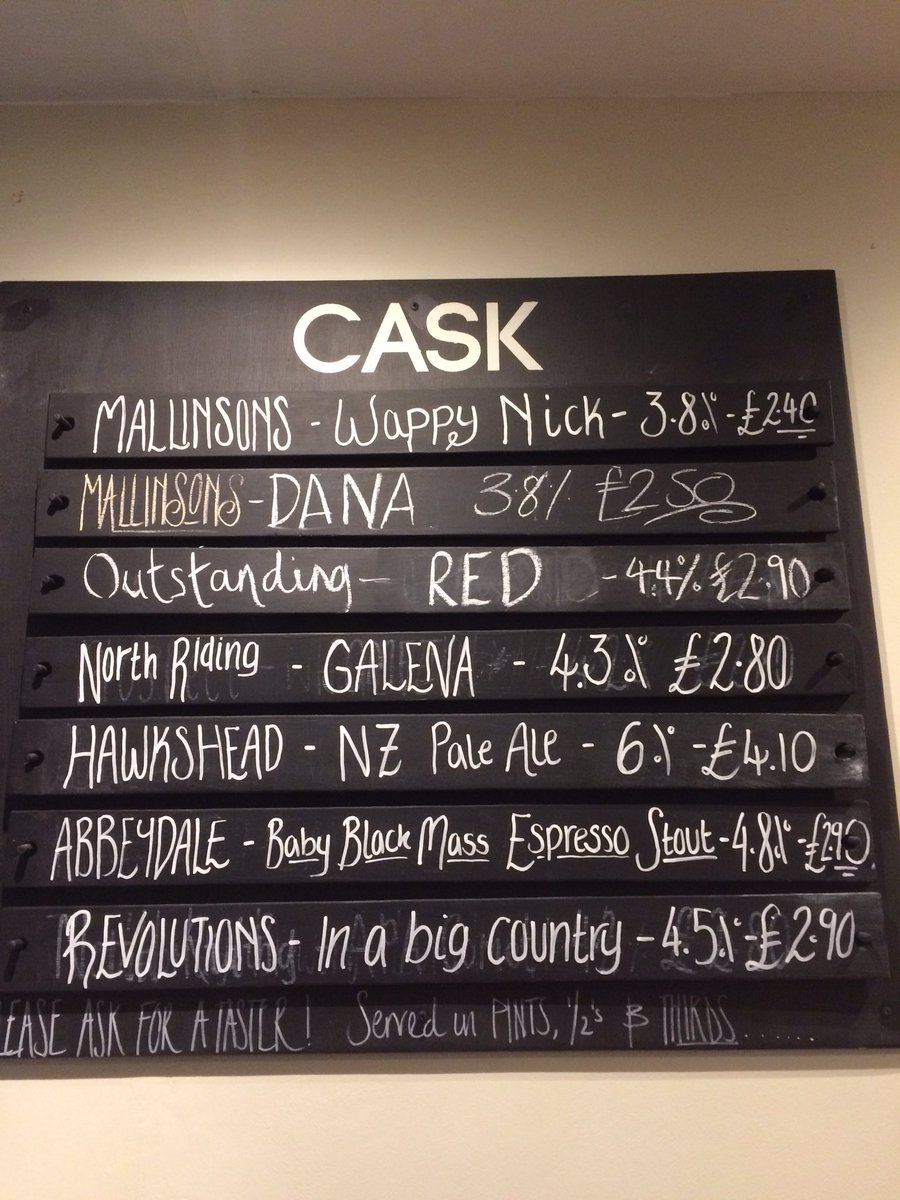 CASK
MALLINSONS - Wappy Nick - 3.8% - £2.40
MALLINSONS - DANA 3.8% £2.50
Outstanding - RED - 4.4% £2.90
North Riding - GALENA - 4.3% £2.80
HAWKSHEAD - NZ Pale Ale - 6% - £4.10
ABBEYDALE - Baby Black Mass Espresso Stout - 4.8% - £2.90
REVOLUTIONS - In a big country - 4.5% - £2.90
LEASE ASK FOR A TASTER! Served in PINTS, 1/2's & THIRDS.......